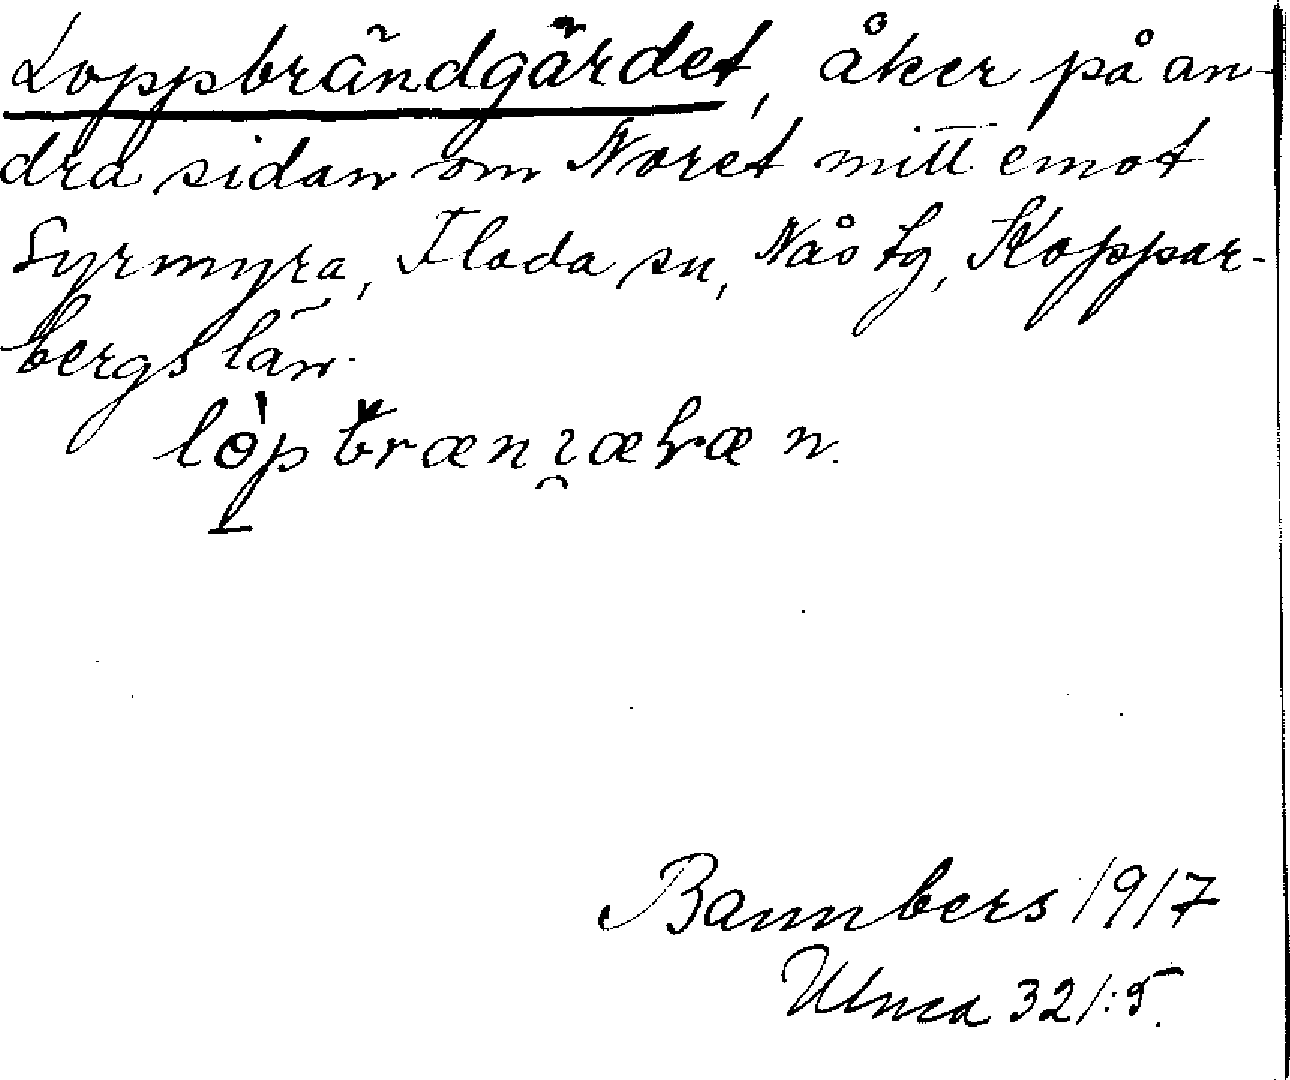 Loppbrändgärdet, åker på an-
dra sidan om Noret mitt emot
Syrmyra, Floda sn, Nås tg, Koppar-
bergs län.
Bannbers 1917
Ulma 321:5.